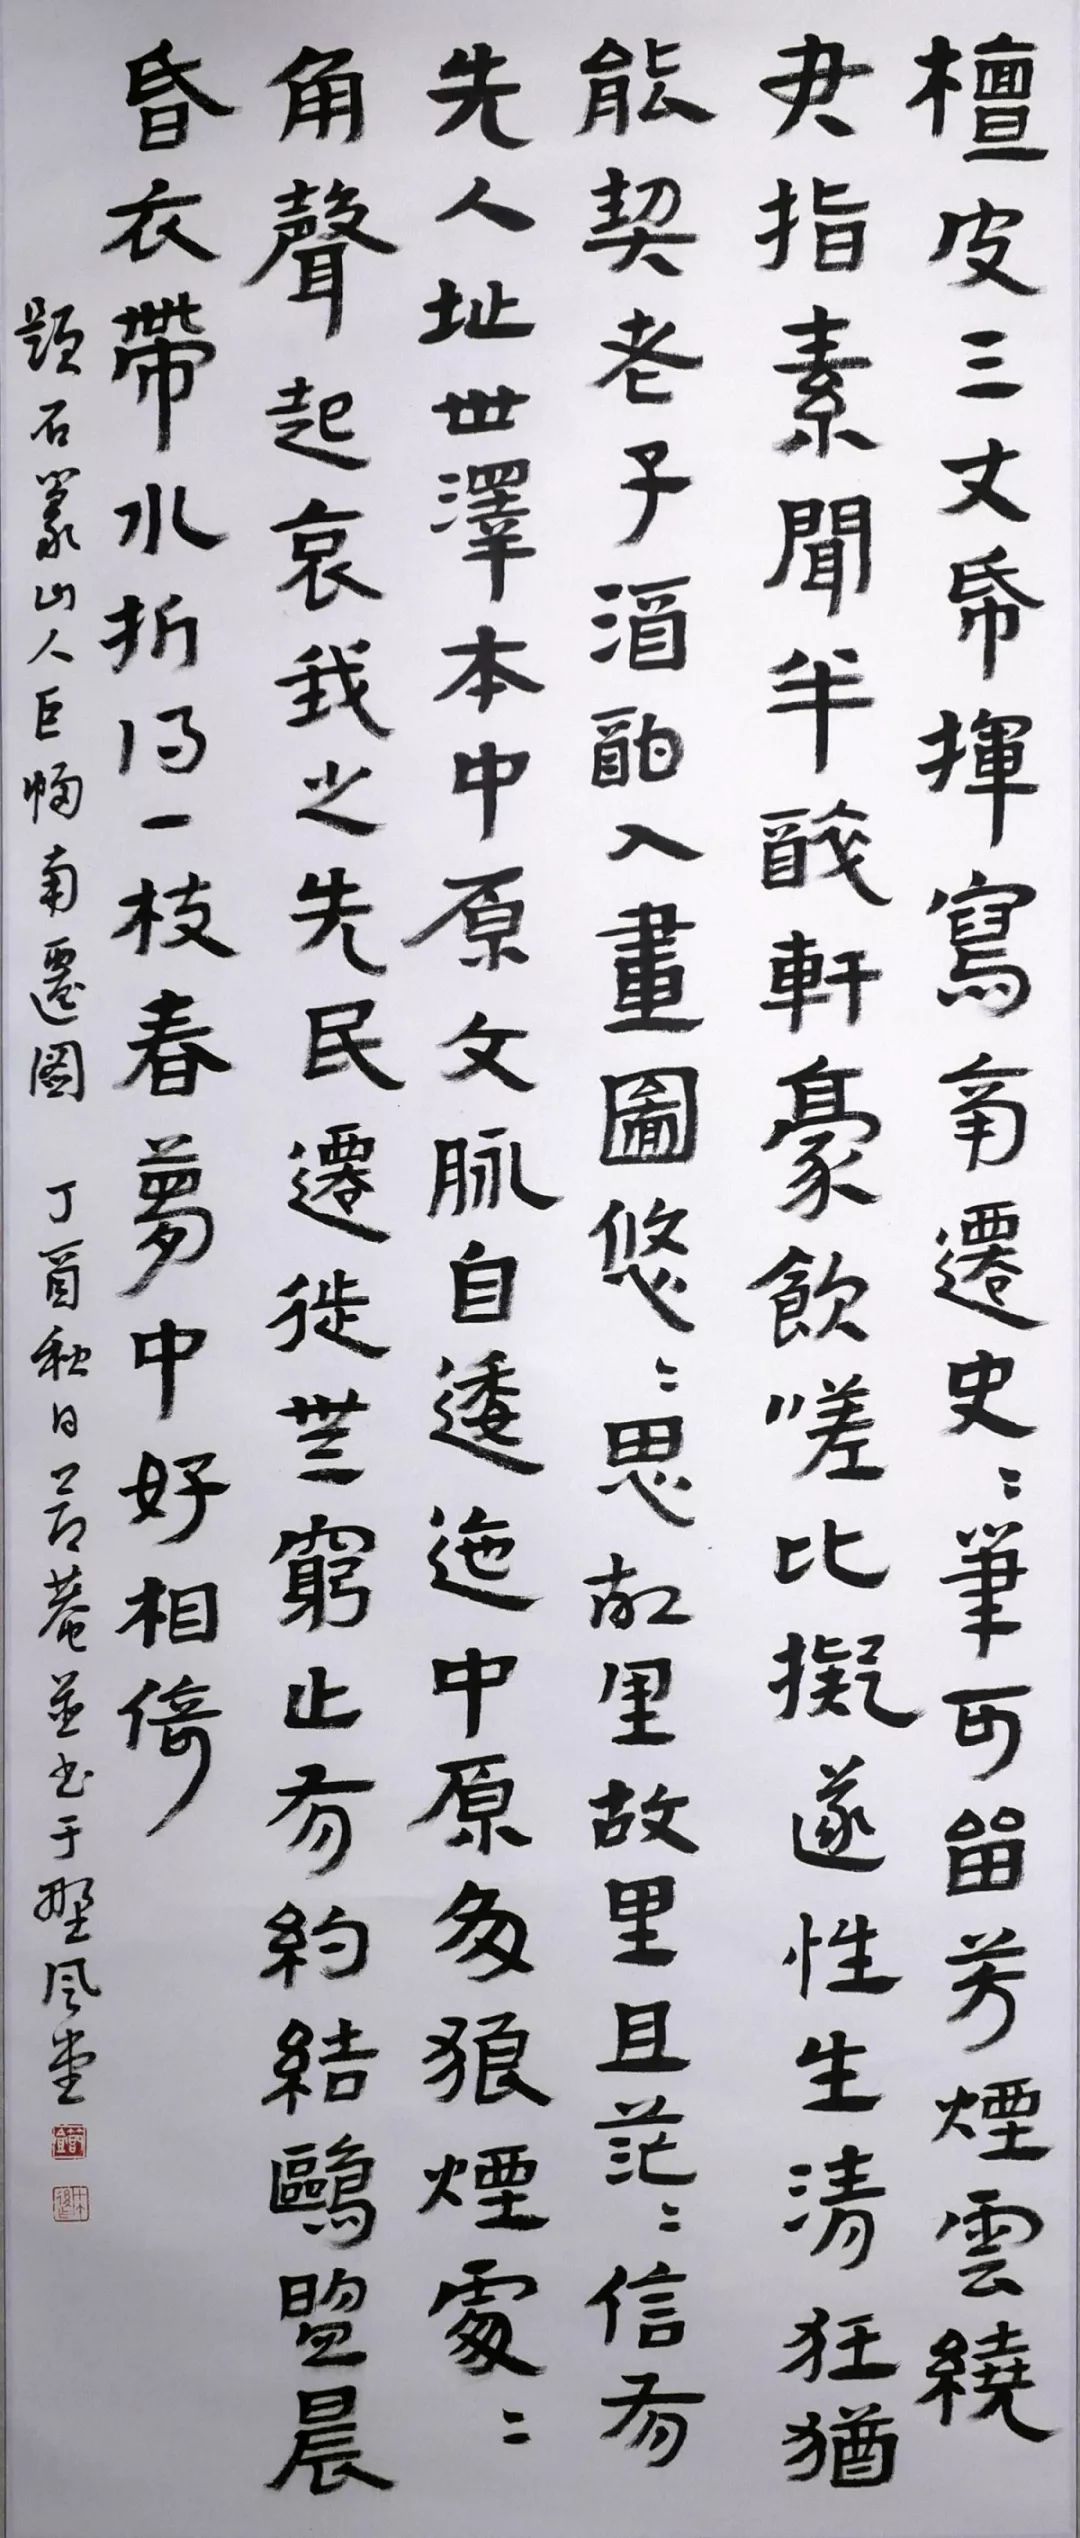 檀皮三丈帋揮寫南遷史〻筆可畱芳煙雲繞
尹指素聞半酸軒豪飲嗟比擬遂性生清狂猶
能契老子酒酣入畫圖悠〻思故里故里且茫〻信有
先人址世澤本中原文脉自逶迤中原多狼煙處〻
角聲起哀我之先民遷徙無窮止有約結鷗盟晨
昏衣帶水折得一枝春夢中好相倚
題石篆山人巨幅南遷圖 丁酉秋日 菴並书于野风堂